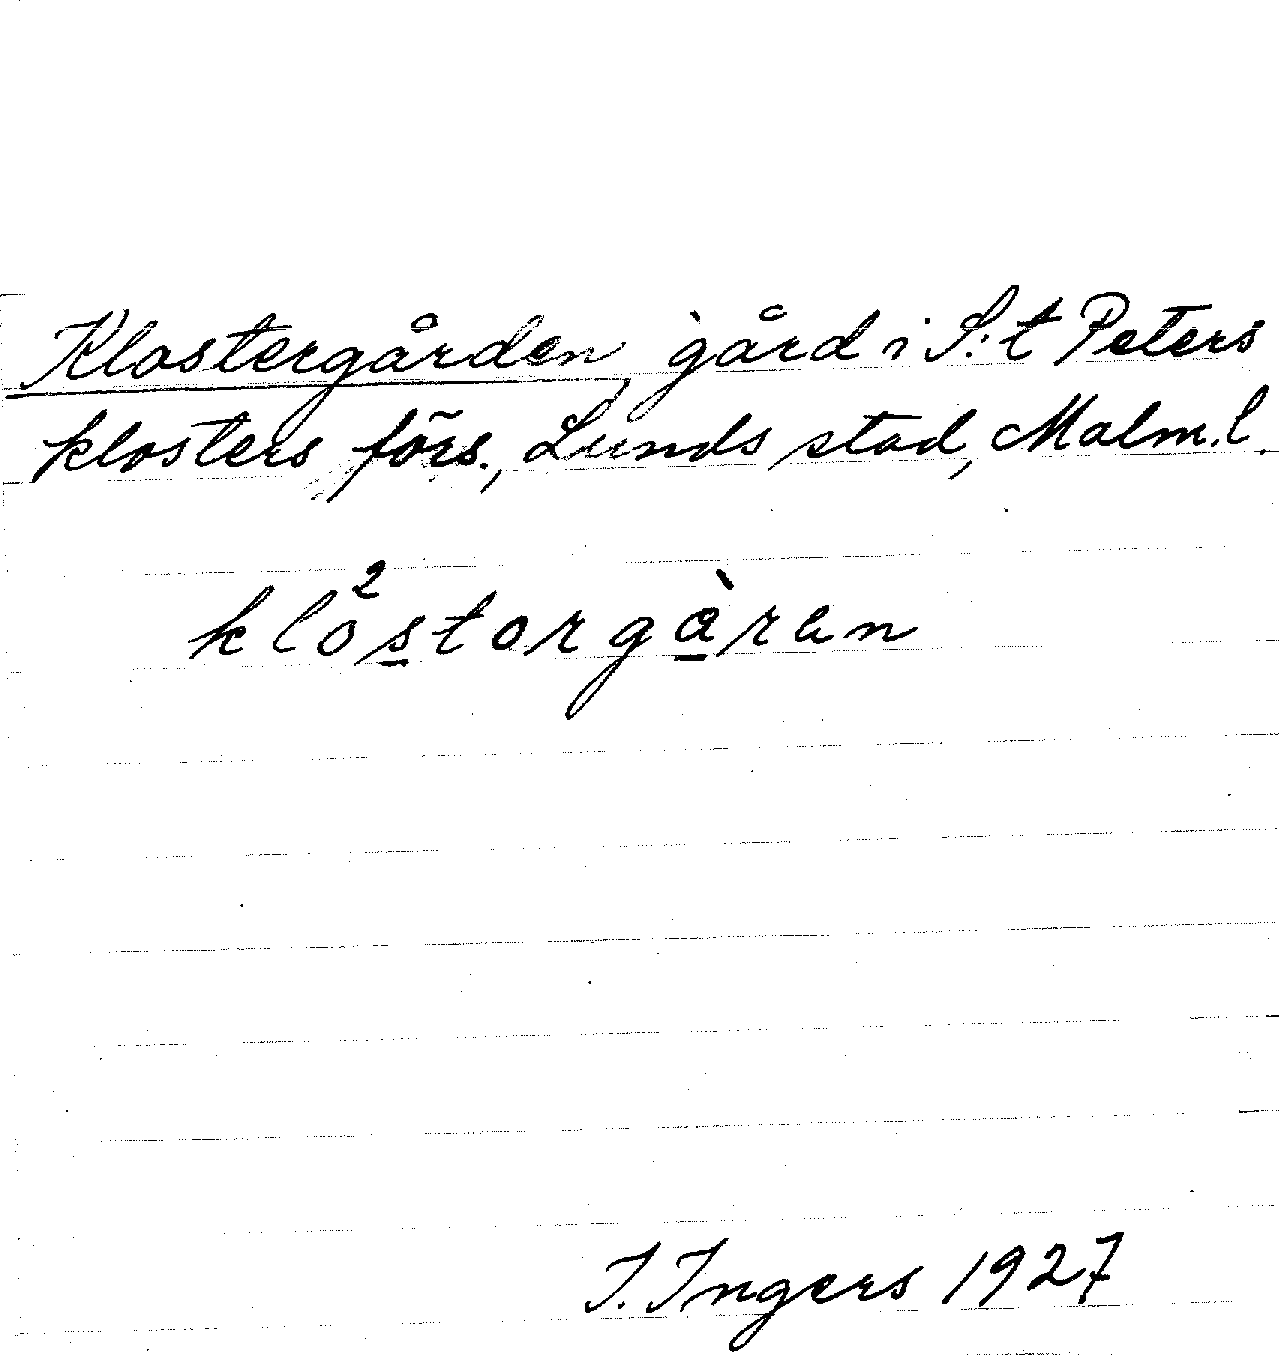 Klostergården, gård i S:t Peters
klosters förs., Lunds stad, Malm.l.
klo²stərgàrən
I. Ingers 1927